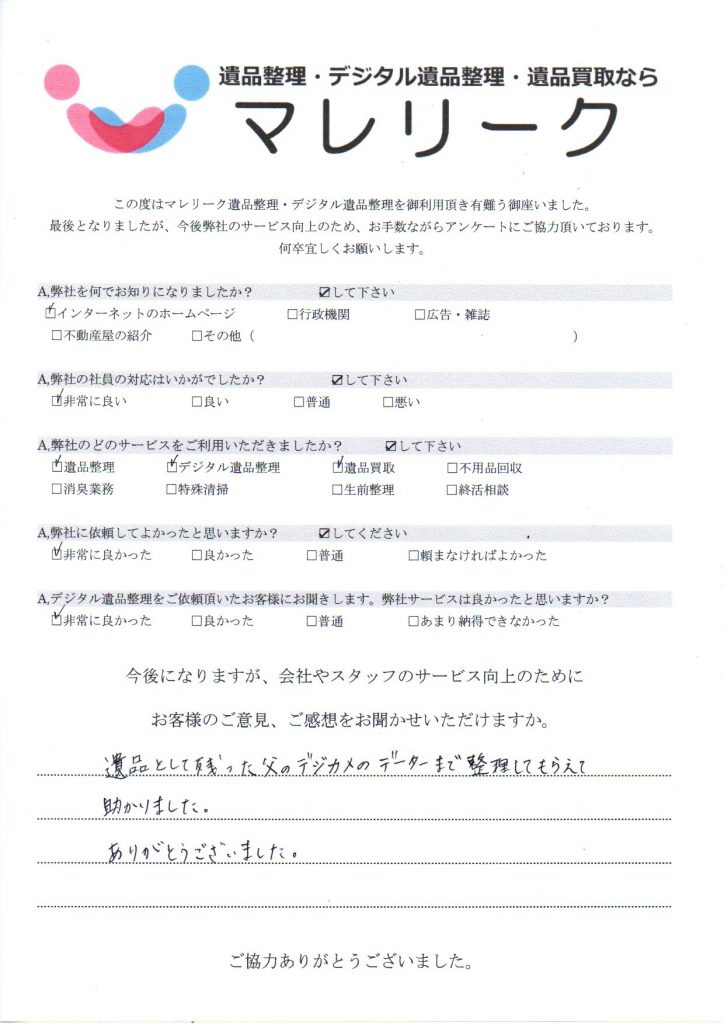 遺品整理・デジタル遺品整理・遺品買取なら
マレリーク
この度はマレリーク遺品整理・デジタル遺品整理を御利用頂き有難う御座いました。
最後となりましたが、今後弊社のサービス向上のため、お手数ながらアンケートにご協力頂いております。
何卒宜しくお願いします。
A,弊社を何でお知りになりましたか？ ☑して下さい
☑インターネットのホームページ □行政機関 □広告・雑誌
□不動産屋の紹介 □その他（ ）
A,弊社の社員の対応はいかがでしたか？ ☑して下さい
☑非常に良い □良い □普通 □悪い
A,弊社のどのサービスをご利用いただきましたか？ ☑して下さい
☑遺品整理 ☑デジタル遺品整理 ☑遺品買取 □不用品回収
□消臭業務 □特殊清掃 □生前整理 □終活相談
A,弊社に依頼してよかったと思いますか？ ☑してください
☑非常に良かった □良かった □普通 □頼まなければよかった
A,デジタル遺品整理をご依頼頂いたお客様にお聞きします。弊社サービスは良かったと思いますか？
☑非常に良かった □良かった □普通 □あまり納得できなかった
今後になりますが、会社やスタッフのサービス向上のために
お客様のご意見、ご感想をお聞かせいただけますか。
遺品として残った父のデジカメのデーターまで整理してもらえて
助かりました。
ありがとうございました。
ご協力ありがとうございました。